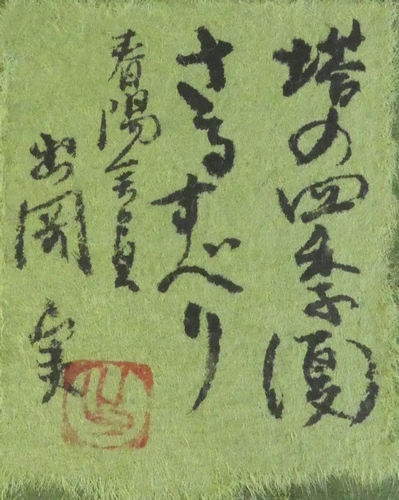 塔の四季夏
さるすべり
春陽会員
安岡 実